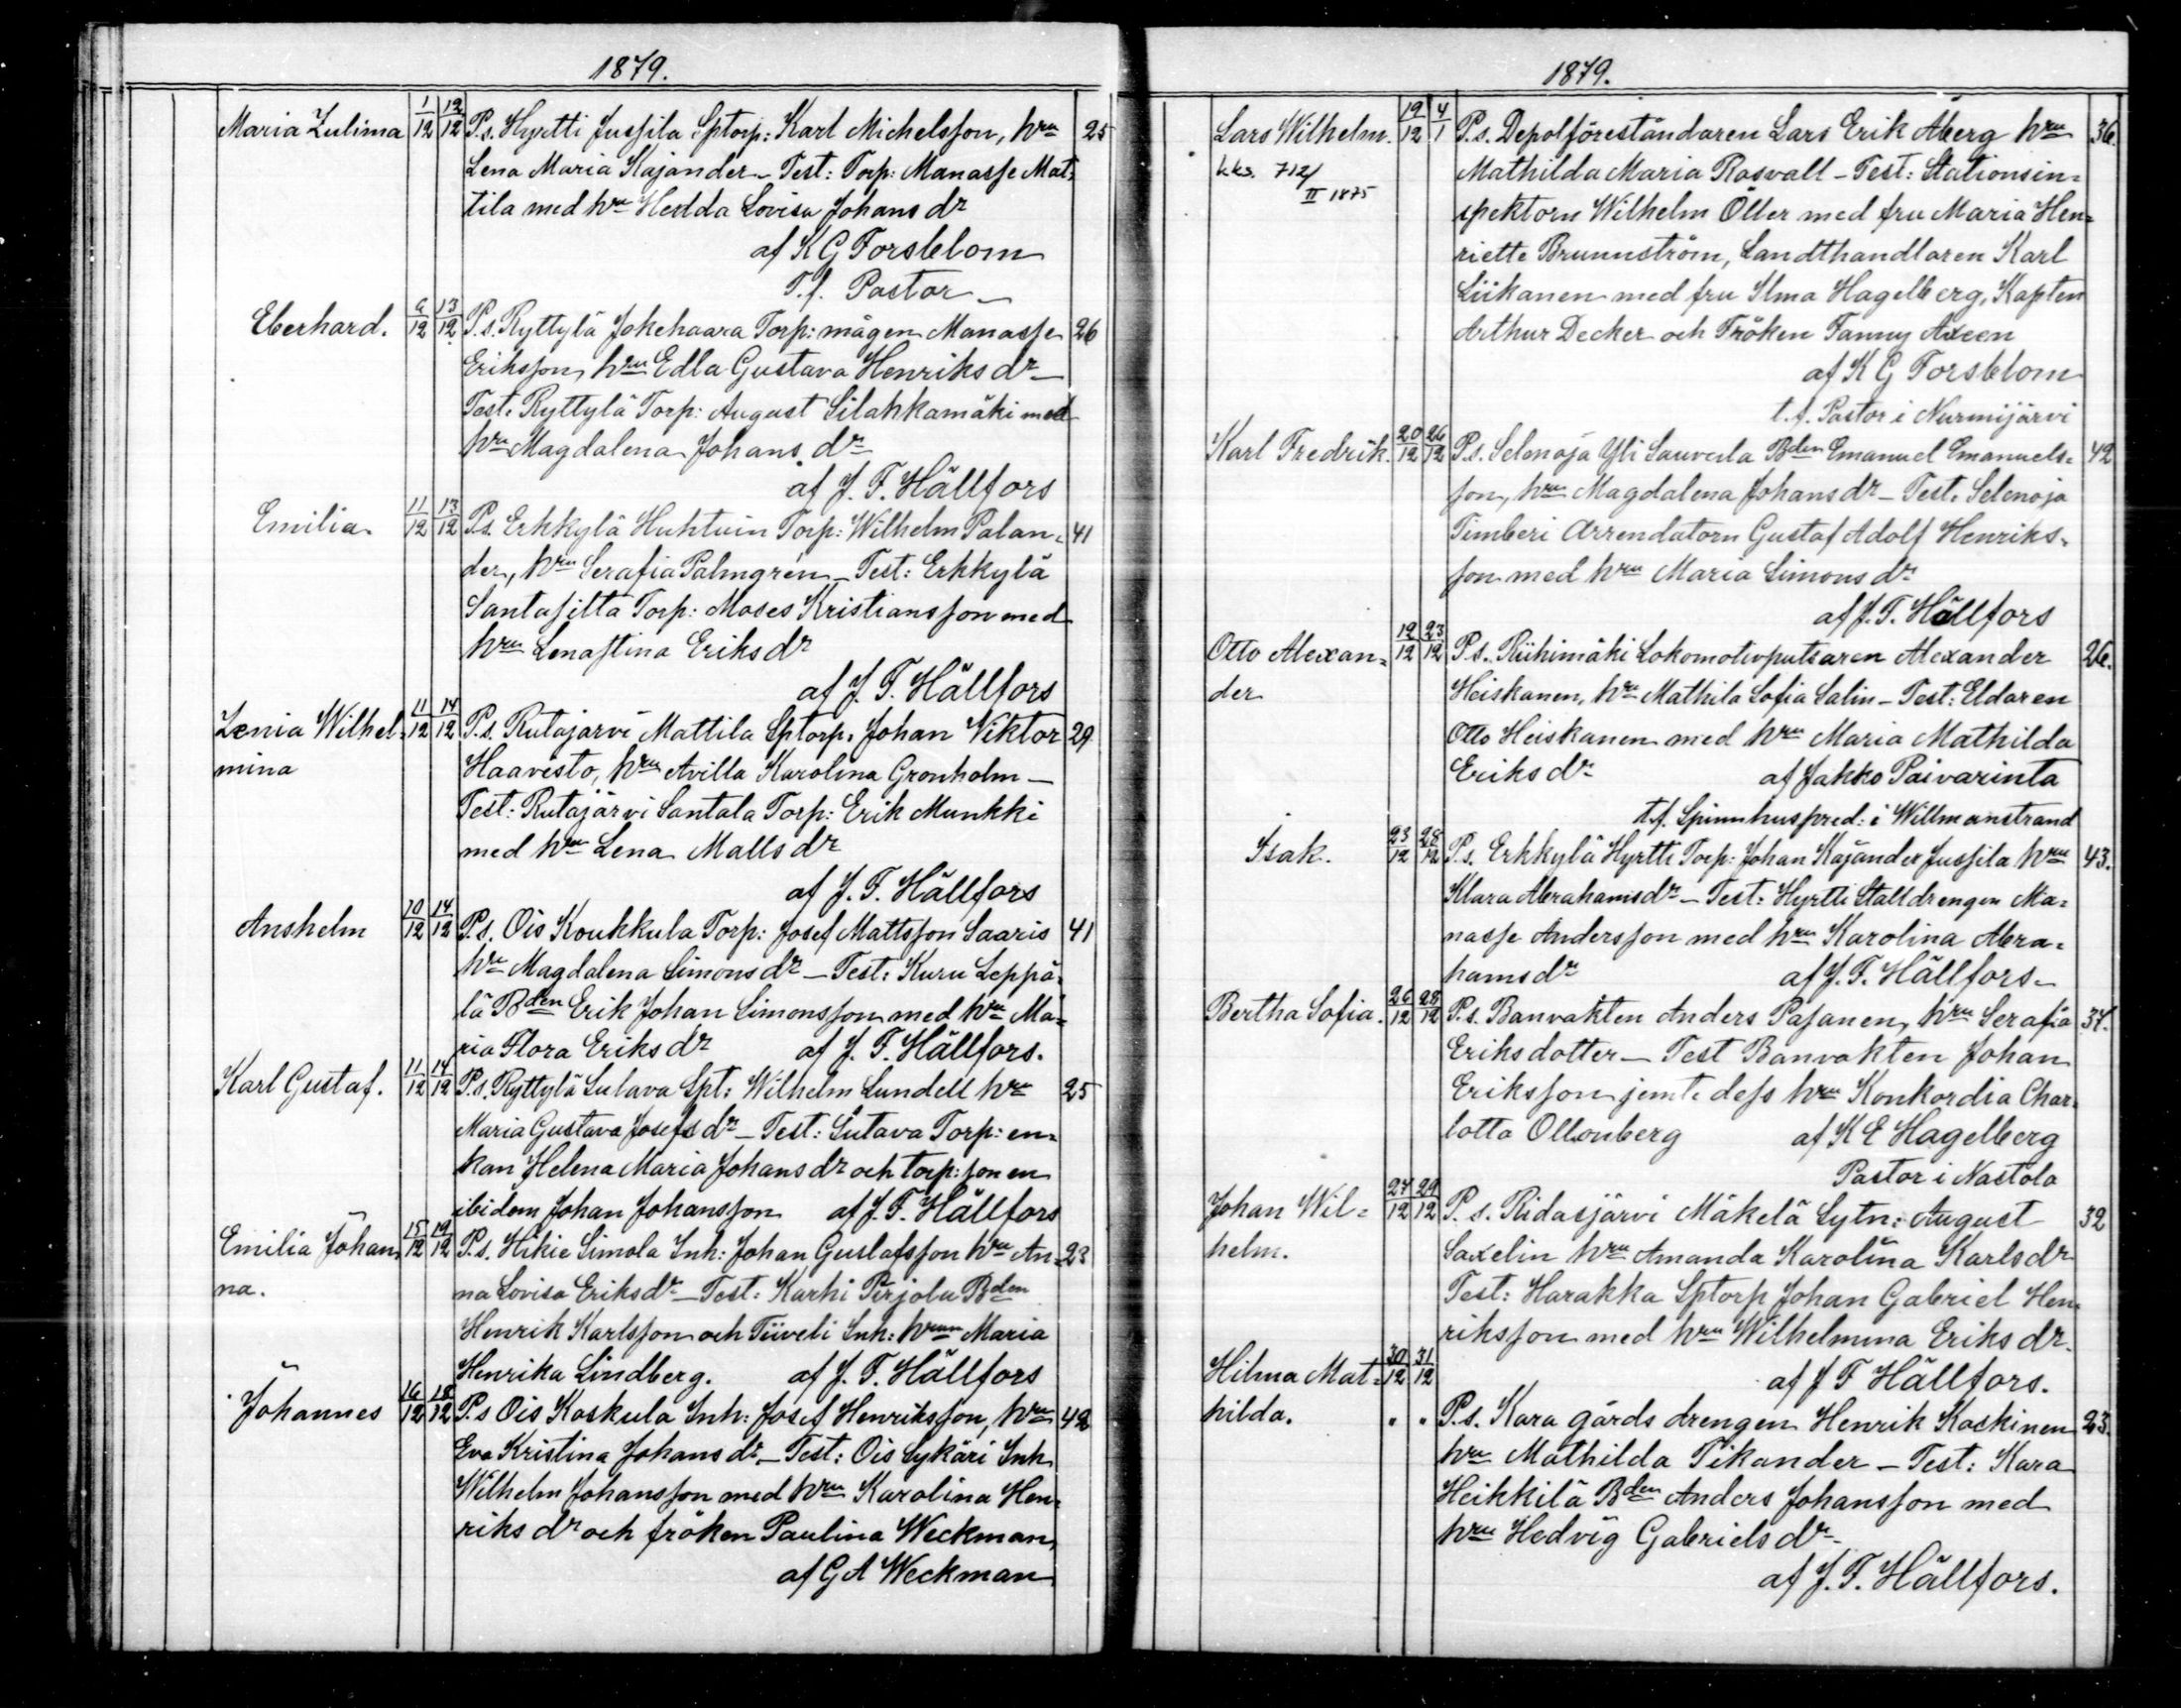 1879.
Maria Zulima 1/12 12/12 P.s. Hyrtti Jussila Sptorp: Karl Michelsson, hru 25
Lena Maria Kajander – Test: Torp: Manasse Mat-
tila med hru Hedda Lovisa Johansdr
af K G Forsblom
T.f. Pastor –
Eberhard. 6/12 13/12 P.s. Ryttylä Jokehaara Torp: mågen Manasse 26
Eriksson, hru Edla Gustava Henriksdr –
Test. Ryttylä Torp: August Silakkamäki med
hru Magdalena Johansdr
af J. F. Hällfors
Emilia 11/12 13/12 P.s. Erkkylä Huhtuin Torp: Wilhelm Palan- 41
der, hru Serafia Palmgrén – Test: Erkkylä
Santasilta Torp: Moses Kristiansson med
hru Lenastina Eriksdr
af J. F. Hällfors
Zenia Wilhel- 11/12 14/12 P.s. Rutajärvi Mattila Sptorp. Johan Viktor 29
mina Haavisto, hru Avilla Karolina Gronholm –
Test: Rutajärvi Santala Torp: Erik Munkki
med hru Lena Mattsdr
af J. F. Hällfors
Anshelm 10/12 14/12 P.s. Ois Koukkula Torp: Josef Mattsson Saaris 41
hru Magdalena Simonsdr – Test: Kuru Leppä-
lä Bden Erik Johan Simonsson med hru Ma-
ria Flora Eriksdr af J. F. Hällfors.
Karl Gustaf. 11/12 14/12 P.s. Ryttylä Sutava Spt: Wilhelm Lundell hru 25
Maria Gustava Josefsdr – Test: Sutava Torp: en-
kan Helena Maria Johansdr och torp: sonen
ibidem Johan Johansson af J. F. Hällfors
Emilia Johan- 15/12 19/12 P.s. Hikie Simola Inh: Johan Gustafsson hru An- 23
na. na Lovisa Eriksdr – Test: Karhi Perjola Bden
Henrik Karlsson och Tiiveli Inh: hrun Maria
Henrika Lindberg. af J. F. Hällfors
Johannes 16/12 18/12 P.s Ois Koskula Inh: Josef Henriksson, hru 42
Eva Kristina Johansdr – Test: Ois Sykäri Inh
Wilhelm Johansson med hru Karolina Hen-
riksdr och fröken Paulina Weckman,
af G A Weckman
1879.
Lars Wilhelm. 19/12 4/1 P.s. Depotföreståndaren Lars Erik Åberg hru 36.
kks. 712/ Mathilda Maria Rosvall – Test: Stationsin-
II 1875 spektorn Wilhelm Öller med fru Maria Hen-
riette Brunnström, Landthandlaren Karl
Liikanen med fru Ilma Hagelberg, Kapten
Arthur Decker och Fröken Fanny Axeen
af K G Forsblom
t.f. Pastor i Nurmijärvi
Karl Fredrik. 20/12 26/12 P.s. Selenoja Yli Sauvula Bden Emanuel Emanuels- 42
son, hru Magdalena Johansdr – Test. Selenoja
Timberi Arrendatorn Gustaf Adolf Henriks-
son med hru Maria Simonsdr
af J. F. Hällfors
Otto Alexan- 12/12 23/12 P.s. Riihimäki Lokomotivputsaren Alexander 26.
der Heiskanen, hru Mathila Sofia Salin – Test: Eldaren
Otto Heiskanen med hru Maria Mathilda
Eriksdr af Jakko Päivarinta
t.f. Spinnhuspred: i Willmanstrand
Isak. 23/12 28/12 P.s. Erkkylä Hyrtti Torp: Johan Kajander Jussila hru 43.
Klara Abrahamsdr – Test: Hyrtti Stalldrengen Ma-
nasse Andersson med hru Karolina Abra-
hamsdr af J. F. Hällfors –
Bertha Sofia. 26/12 28/12 P.s. Banvakten Anders Pasanen, hru Serafia 37.
Eriksdotter – Test Banvakten Johan
Eriksson jemte dess hru Konkordia Char-
lotta Ollonberg af K E Hagelberg
Pastor i Nastola
Johan Wil- 24/12 29/12 P.s. Ridasjärvi Mäkelä Sytn: August 32
helm. Saxelin hru Amanda Karolina Karlsdr
Test: Harakka Sptorp Johan Gabriel Hen-
riksson med hru Wilhelmina Eriksdr.
af J F Hällfors.
Hilma Mat- 30/12 31/12
hilda. " " P.s. Kara gårds drengen Henrik Koskinen 23.
hru Mathilda Tikander – Test: Kara
Heikkilä Bden Anders Johansson med
hru Hedvig Gabrielsdr –
af J. F. Hällfors.